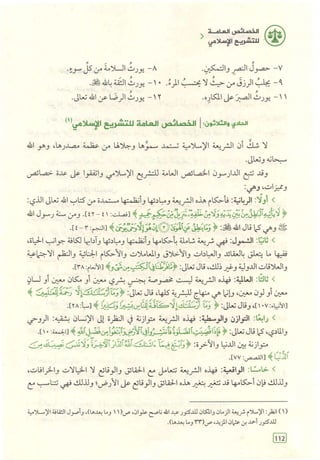 الخصائص العامة
للتشريع الإسلامي
٧- حصول النصر والتمكين. ٨- يورث السلامة من كل سوء.
٩- يجلب الرزق من حيث لا يحتسب المرء. ١٠- يورث الثقة بالله ﷻ.
١١- يورث الصبر على المكاره. ١٢- يورث الرضا عن الله تعالى.
الحادي والثلاثون: الخصائص العامة للتشريع الإسلامي(١)
لا شك أن الشريعة الإسلامية تستمد سموها وجلالها من عظمة مصدرها، وهو الله
سبحانه وتعالى.
وقد تتبع الدارسون الخصائص العامة للتشريع الإسلامي واتفقوا على عدة خصائص
ومميزات، وهي:
أولاً: الربانية: فأحكام هذه الشريعة ومبادئها وأنظمتها مستمدة من كتاب الله تعالى الذي:
﴿لَا يَأْتِيهِ الْبَاطِلُ مِنْ بَيْنِ يَدَيْهِ وَلَا مِنْ خَلْفِهِ تَنْزِيلٌ مِنْ حَكِيمٍ حَمِيدٍ﴾ [فصلت: ٤١-٤٢]. ومن سنة رسول الله
ﷺ وهي كما قال الله ﷻ: ﴿وَمَا يَنْطِقُ عَنِ الْهَوَى إِنْ هُوَ إِلَّا وَحْيٌ يُوحَى﴾ [النجم: ٣-٤].
ثانياً: الشمول: فهي شريعة شاملة بأحكامها وأنظمتها ومبادئها وآدابها لكافة جوانب الحياة،
ففيها ما يتعلق بالعقائد والعبادات والأخلاق والمعاملات والأحكام الجنائية والنظم الاجتماعية
والعلاقات الدولية وغير ذلك، قال تعالى: ﴿مَا فَرَّطْنَا فِي الْكِتَابِ مِنْ شَيْءٍ﴾ [الأنعام: ٣٨].
ثالثاً: العالمية: فهذه الشريعة ليست خصوصية بجنس بشري معين أو مكان معين أو لسان
معين أو لون معين، وإنما هي منهاج للبشرية كلها، قال تعالى: ﴿وَمَا أَرْسَلْنَاكَ إِلَّا رَحْمَةً لِلْعَالَمِينَ﴾
[الأنبياء: ١٠٧]، وقال تعالى: ﴿وَمَا أَرْسَلْنَاكَ إِلَّا كَافَّةً لِلنَّاسِ بَشِيرًا وَنَذِيرًا﴾ [سبأ: ٢٨].
رابعاً: التوازن والوسطية: فهذه الشريعة متوازنة في النظرة إلى الإنسان بشقيه: الروحي
والمادي، كما قال تعالى: ﴿فَإِذَا قُضِيَتِ الصَّلَاةُ فَانْتَشِرُوا فِي الْأَرْضِ وَابْتَغُوا مِنْ فَضْلِ اللَّهِ﴾ [الجمعة: ١٠].
متوازنة بين الدنيا والآخرة: ﴿وَابْتَغِ فِيمَا آتَاكَ اللَّهُ الدَّارَ الْآخِرَةَ وَلَا تَنْسَ نَصِيبَكَ مِنَ
الدُّنْيَا﴾ [القصص: ٧٧].
خامساً: الواقعية: فهذه الشريعة تتعامل مع الحقائق والوقائع لا الخيالات والخرافات،
ولذلك فإن أحكامها قد تتغير بتغير هذه الحقائق والوقائع على الأرض؛ ولذلك فهي تتناسب مع
(١) انظر: الإسلام شريعة الزمان والمكان للدكتور عبد الله ناصح علوان، ص(١١ وما بعدها)، وأصول الثقافة الإسلامية
للدكتور أحمد بن عثمان المزيد، ص(٣٣ وما بعدها).
112